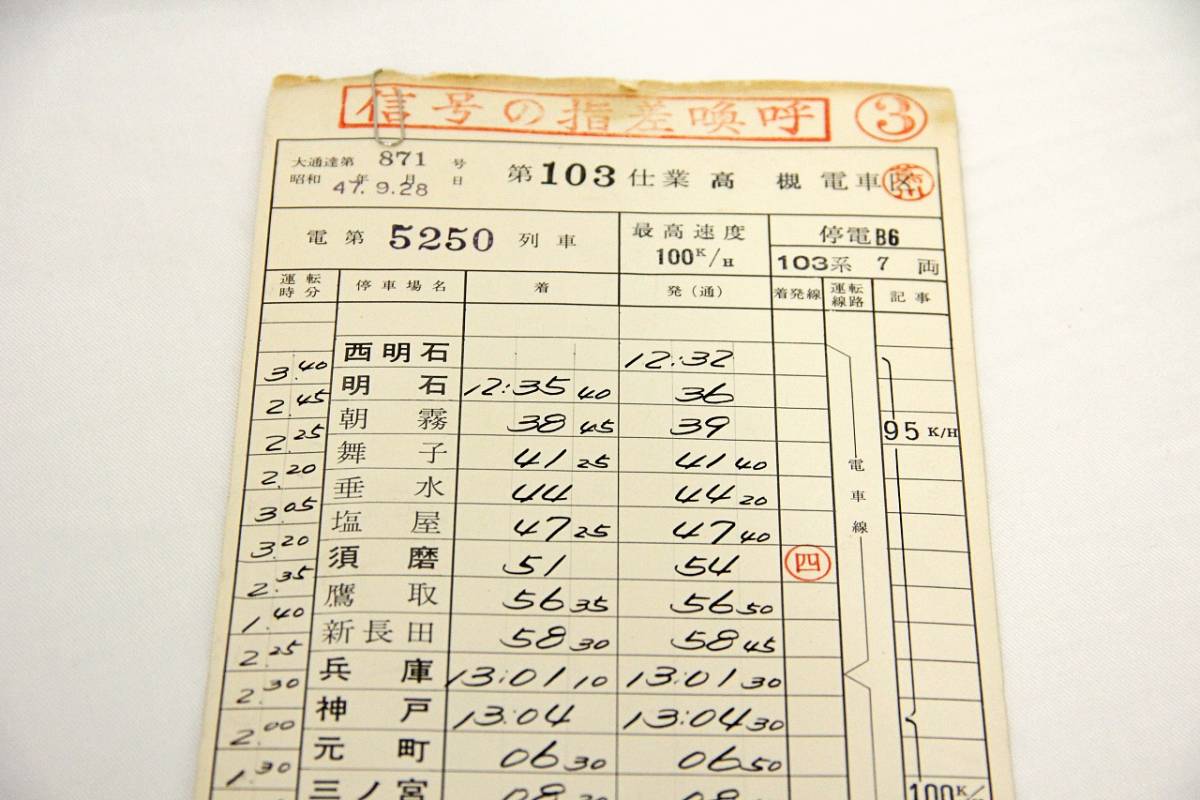 信号の指差喚呼 ③
大通達第 871 号
昭和 47年9月28日
第103仕業 高槻電車区
電第 5250 列車
最高速度 100K/H
停電B6
103系 7両
運転時分 停車場名 着 発(通) 着発線 運転線路 記事
西明石 12:32
3.40
明石 12:35 40 36
2.45
朝霧 38 45 39
2.25
舞子 41 25 41 40
2.20
垂水 44 44 20
3.05
塩屋 47 25 47 40
3.20
須磨 51 54 四
2.35
鷹取 56 35 56 50
1.40
新長田 58 30 58 45
2.25
兵庫 13:01 10 13:01 30
2.30
神戸 13:04 13:04 30
2.00
元町 06 30 06 50
1.30
三ノ宮
電車線
95 K/H
100K/